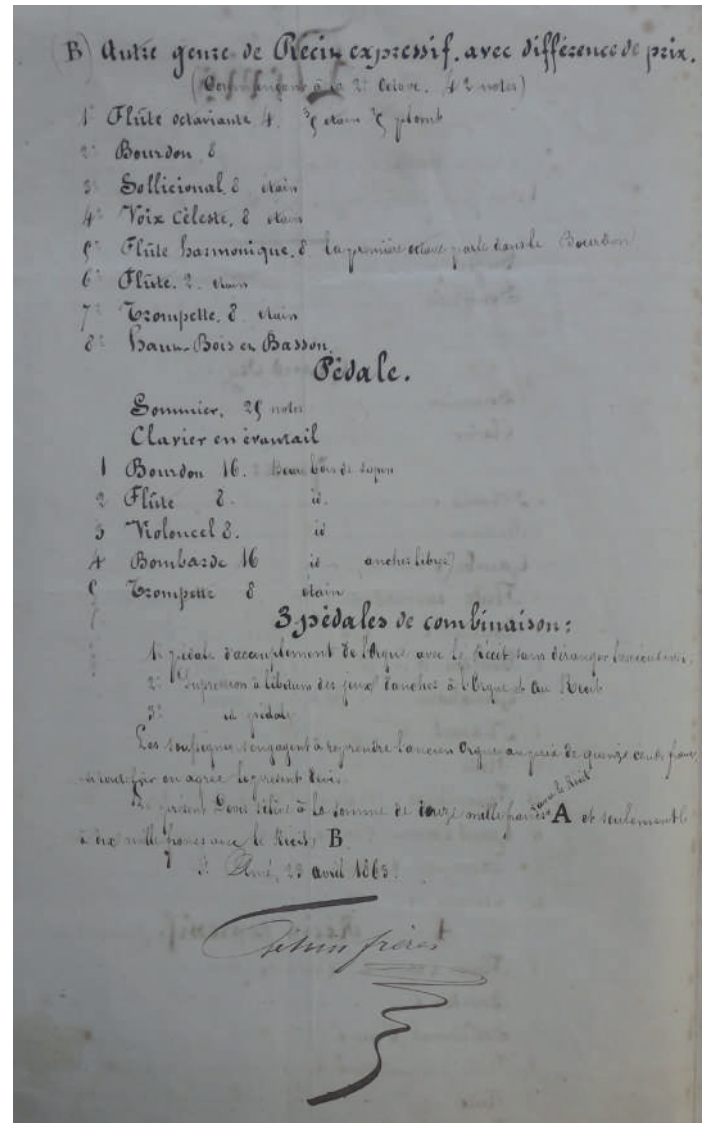 B) Autre genre de Récit expressif. avec différence de prix.
(Commençant à la 2e Octave. 42 notes)
1° Flûte octaviante 4. 3/5 étain 2/5 plomb
2° Bourdon 8
3° Sollicional. 8 étain
4° Voix Céleste. 8 étain
5° Flûte harmonique. 8 la première octave parle dans le Bourdon
6° Flûte. 2. étain
7° Trompette. 8. étain
8° Haut-Bois et Basson.
Pédale.
Sommier, 25 notes
Clavier en éventail
1 Bourdon 16. Beau bois de sapin
2 Flûte 8. id.
3 Violoncel 8. id
4 Bombarde 16 id anches libres
5 Trompette 8 étain
3 pédales de combinaison:
1° pédale d'accouplement de l'Orgue avec le Récit sans déranger
2° Supression à libitum des jeux d'anches à l'Orgue et au Récit
3° id pédale
Les soussignés s'engagent à reprendre l'ancien Orgue au prix de quinze cents francs
si toutefois on agrée le présent devis.
Le présent Devis s'élève à la somme de onze mille francs avec le Récit A et seulement
à dix mille francs avec le Récit B.
St Amé, 23 avril 1863.
frères